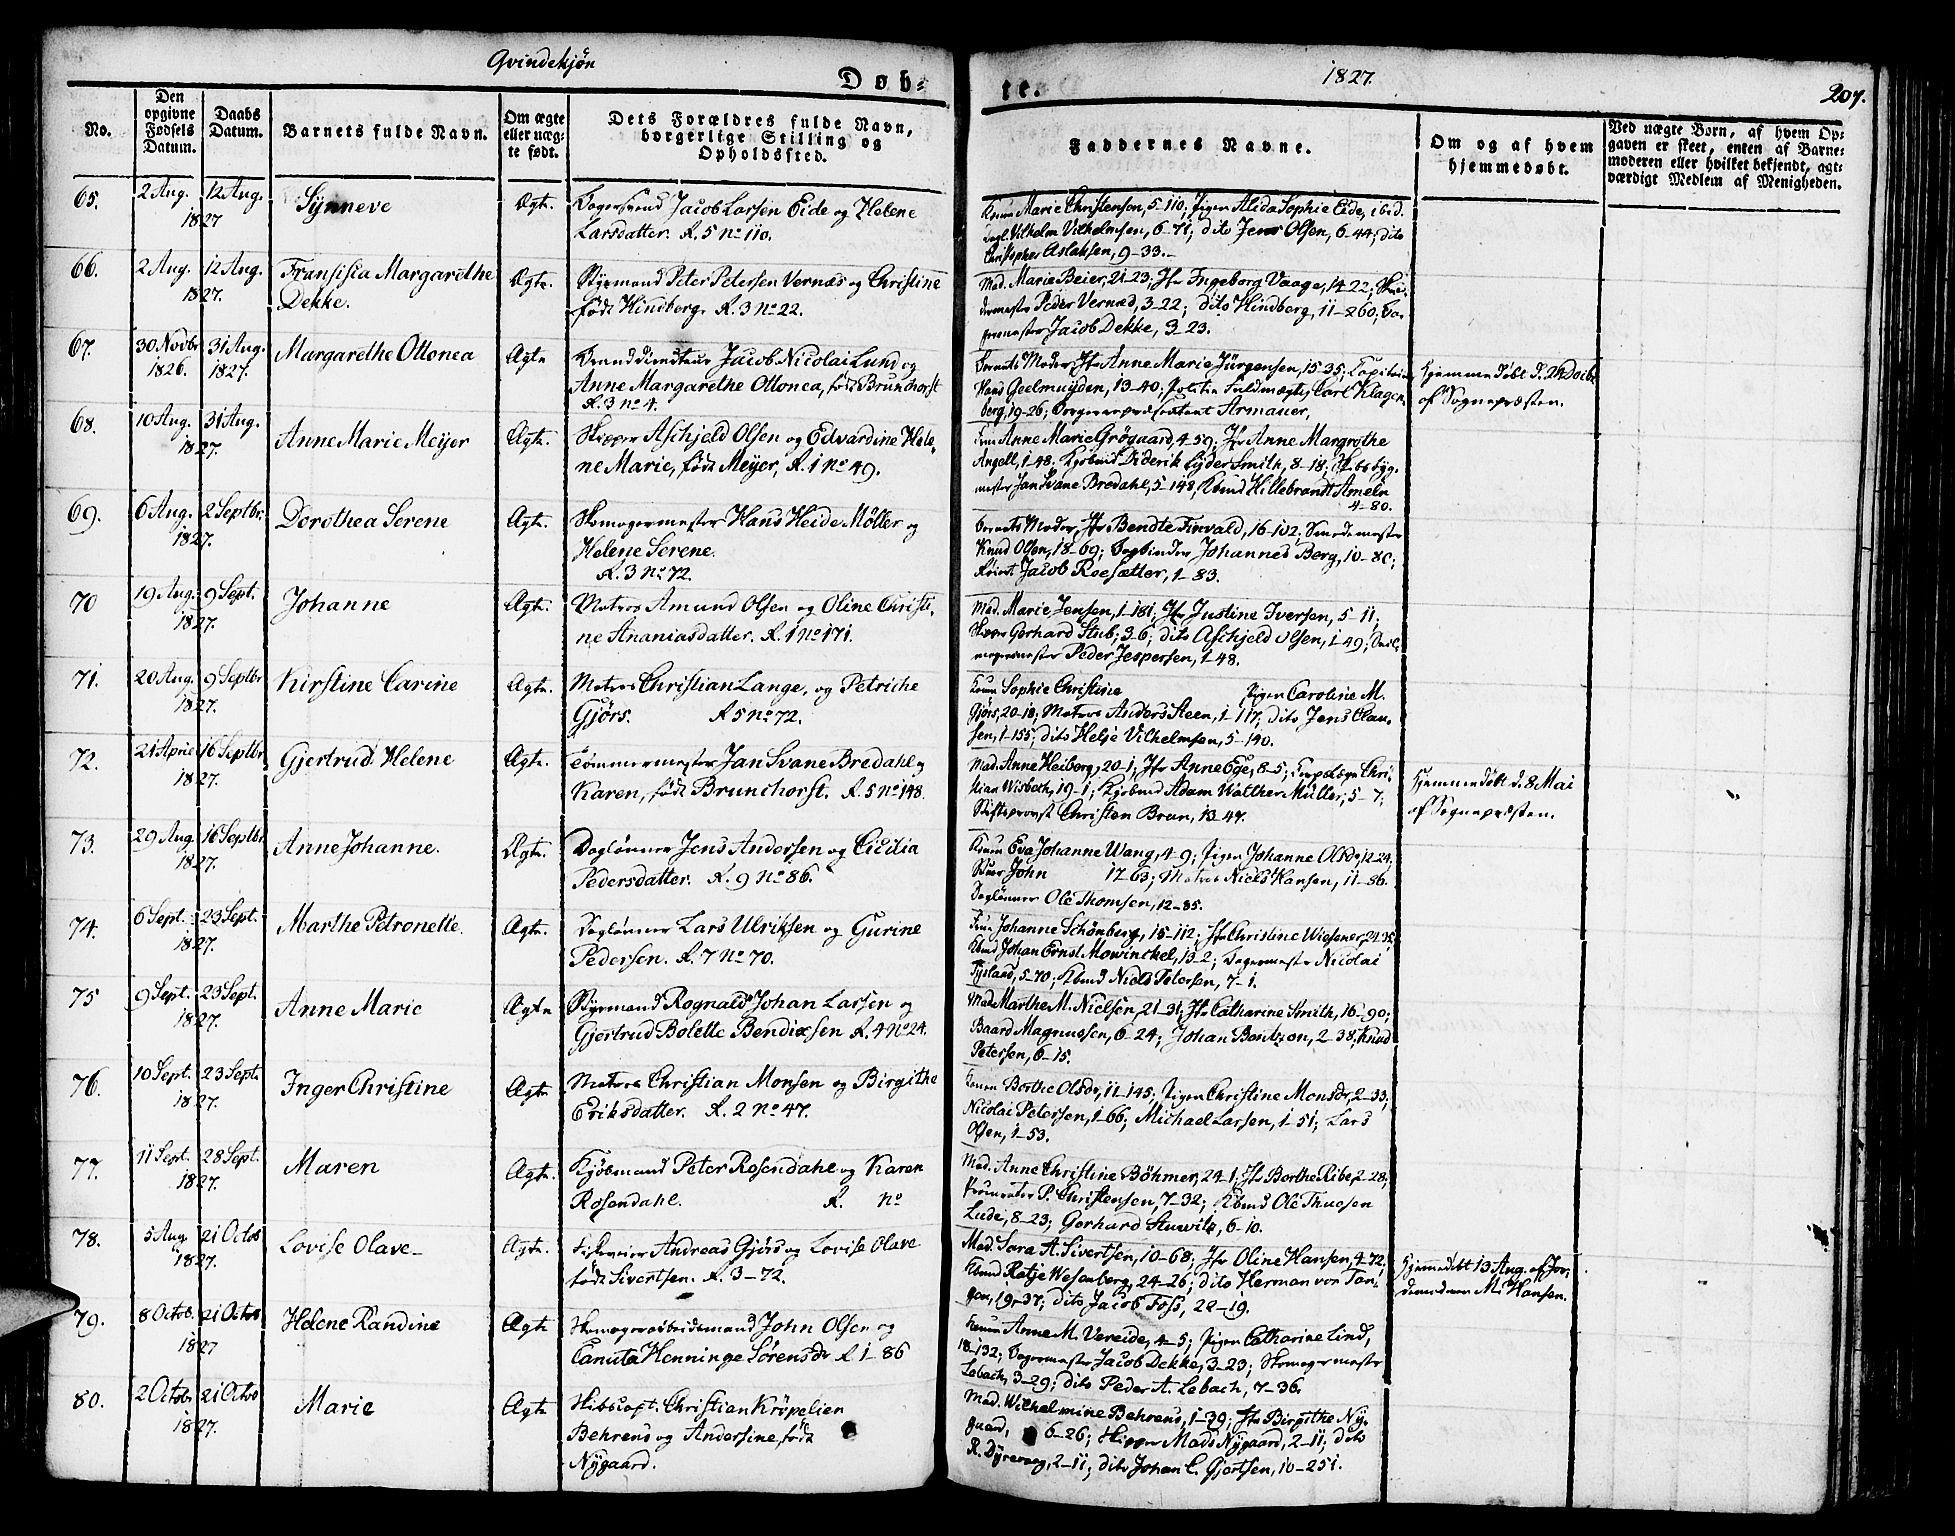 Qvindekjøn
Døb-
te.
1827.
207.
No.
Den opgivne Fødsels Datum.
Daabs Datum.
Barnets fulde Navn.
Om ægte eller uægte født.
Dets Forældres fulde Navn, borgerlige Stilling og Opholdssted.
Faddernes Navne.
Om og af hvem hjemmedøbt.
Ved uægte Børn, af hvem Opgaven er skeet, enten af Barnemoderen eller hvilket bekjendt, agtværdigt Medlem af Menigheden.
65.
2 Aug. 12 Aug.
1827
Synneve
Ægte.
Jacob Larsen Eide og Helene
Larsdatter. R. 5 No 110.
Marie Christensen, 5-110; Pigen Alida Sophie Eide, ibid.
Vilhelm Vilhelmsen, 6-71; dito Jens Olsen, 6-44; dito
Christopher Aslaksen, 9-33.-
66.
2 Aug. 12 Aug.
1827.
Fransisia Margarethe
Dekke.
Ægte.
Styrmand Peter Petersen Vernæs og Christine
født Hindberg. R. 3 No 22.
Mad. Marie Beier, 21-23; Jfr Ingeborg Vaage, 14-22;
Peder Vernæs, 3-22; dito Hindberg, 11-260;
Jacob Dekke, 3-23.
67.
30 Novbr 31 Aug.
1826. 1827.
Margarethe Ottonea
Ægte
Branddirecteur Jacob Nicolai Lund og
Anne Margarethe Ottonea, født Brunchorst
R. 3 No 4.
Barnets Moder, Jfr Anne Marie Jürgensen, 15-35; Capitain
Hans Geelmuyden, 13-40; Politie Fuldmægtig Carl Klagen
berg, 19-26; Borgerrepræsentant Armauer,
Hjemmedøbt d.
af Sognepræsten.
68.
10 Aug. 31 Aug.
1827.
Anne Marie Meyer
Ægte.
Skipper Aschjeld Olsen og Edvardine Hele-
ne Marie, født Meyer, R. 1 No 49.
Anne Marie Grøgaard, 4-59; Jfr Anne Margrethe
Angell, 1-48; Kjøbmd Diderik Lyder Smith, 8-18; Skibsbyg-
mester Jan Svane Bredahl, 5-148, Kbmd Hillebrandt Ameln
4-80.
69.
6 Aug. 2 Septbr.
1827.
Dorothea Serene
Ægte.
Skomagermester Hans Heide Møller og
Helene Serene.
R. 3 No 72.
Barnets Moder, Jfr Bendte Finvald, 16-102; Smedemester
Knud Olsen, 18-69; Bogbinder Johannes Berg, 10-80;
Jacob Roesætter, 1-83.
70
19 Aug. 9 Sept.
1827.
Johanne
Ægte.
Matros Amund Olsen og Oline Christi-
ne Ananiasdatter. R. 1 No 171.
Mad. Marie Jensen, 1-181; Jfr Justine Iversen, 5-11;
Skipper Gerhard Stub; 3-6; dito Aschjeld Olsen, 1-49;
Peder Jespersen, 1-48.
71.
20 Aug. 9 Septbr
1827.
Kirstine Carine
Ægte.
Matros Christian Lange, og Petriche
Gjørs. R 5 No 72.
Konen Sophie Christine Pigen Caroline M.
Gjørs, 20-10; Matros Anders Steen, 1-117, dito Jens Clau-
sen, 1-155; dito Helje Vilhelmsen, 5-140.
72.
21 April 16 Septbr
1827.
Gjertrud Helene
Ægte.
Tømmermester Jan Svane Bredahl og
Karen, født Brunchorst. R. 5 No 148.
Mad. Anne Heiberg, 20-1; Jfr Anne Ege, 8-5; Corpslæge Chri-
stian Wisbeth, 19-1; Kjøbmd Adam Walther Müller, 5-7;
Stiftsprovst Christen Brun, 13-47.
Hjemmedøbt d. 8 Mai
af Sognepræsten.
73.
29 Aug 16 Septbr
1827.
Anne Johanne.
Ægte.
Daglønner Jens Andersen og Cicilia
Pedersdatter. R. 9 No 86.
Konen Eva Johanne Wang, 4-9; Pigen Johanne Olsdr, 12-24.
John 17-63; Matros Niels Hansen, 11-86.
Daglønner Ole Thomsen, 12-85.
74.
6 Sept. 23 Sept.
1827.
Marthe Petronelle.
Ægte.
Daglønner Lars Ulriksen og Gurine
Pedersen. R. 7 No 70.
Johanne Schönberg, 15-112; Jfr Christine Wiesener, 24-35,
Kbmd Johan Ernst Mowinckel, 13-2; Bagermester Nicolai
Tysland, 5-70; Kbmd Niels Petersen, 7-1.
75
9 Sept. 23 Sept.
1827.
Anne Marie
Ægte
Styrmand Rognald Johan Larsen og
Gjertrud Bolette Bendixsen R. 4 No 24.
Mad. Marthe M. Nielsen, 21-31; Jfr Catharine Smith, 16-90;
Baard Magnussen, 6-24; Johan Bontzon, 2-38; Knud
Petersen, 6-15.
76.
10 Sept. 23 Sept.
1827.
Inger Christine
Ægte
Matros Christian Monsen og Birgithe
Eriksdatter. R. 2 No 47.
Konen Berthe Olsdr, 11-145; Pigen Christine Monsdr, 2-33;
Nicolai Petersen, 1-66; Michael Larsen, 1-51; Lars
Olsen, 1-53.
77.
11 Sept. 28 Sept.
1827.
Maren
Ægte.
Kjøbmand Peter Rosendahl og Karen
Rosendahl. R. No
Mad. Anne Christine Böhmer, 24-1; Jfr Berthe Ribe, 2-28;
Procurator P. Christensen, 7-32; Kbmd Ole Thuesen
Lude, 8-23; Gerhard Stuwitz, 6-10.
78.
5 Aug. 21 Octob
1827.
Lovise Olave-
Ægte.
Andreas Gjørs og Lovise Olave
født Sivertsen. R. 3-72.
Mad. Sara A. Sivertsen, 10-68; Jfr Oline Hansen, 4-72,
Kbmd Ratje Wesenberg, 24-26; dito Herman von Tan-
gen, 19-37; dito Jacob Foss, 22-19.
Hjemmedøbt 13 Aug. af Jor-
demoderen M. Hansen.
79.
8 Octob. 21 Octob
1827
Helene Randine
Ægte
Skomagerarbeidsmand John Olsen og
Canuta Henninge Sørensdr R 1-86
Konen Anne M. Vereide, 4-5; Pigen Catharine Lind,
18-132; Bagermester Jacob Dekke, 3-23; Skomagermester
Lebach, 3-29; dito Peder A. Lebach, 7-36.
80.
2 Octobr 21 Octob
1827.
Marie
Ægte
Skibscapt. Christian Krøpelien
Behrens og Andersine, født
Nygaard.
Mad. Wilhelmine Behrens, 1-39; Jfr Birgithe Ny-
gaard, 6-26; Skipper Mads Nygaard, 2-11; dito
R. Dyrevaag, 2-11; dito Johan C. Gjertsen, 10-251.